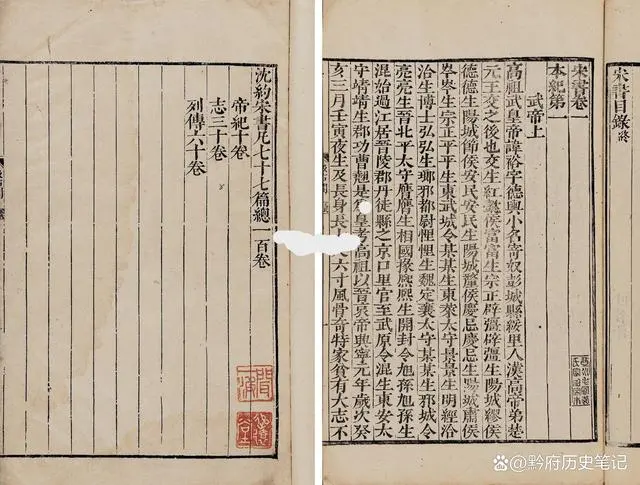 宋書目錄終
宋書卷一
本紀第一
武帝上
高祖武皇帝諱裕字德輿小名寄奴彭城縣綏里人漢高帝弟楚
元王交之後也交生紅懿侯富富生宗正辟彊辟彊生陽城繆侯
德德生陽城節侯安民安民生陽城釐侯慶忌慶忌生陽城肅侯
岑岑生宗正平平生東武城令某某生東萊太守景景生明經洽
洽生博士弘弘生瑯邪都尉悝悝生魏定襄太守某某生邪城令
亮亮生晉北平太守膺膺生相國掾熙熙生開封令旭孫旭孫生
混始過江居晉陵郡丹徒縣之京口里官至武原令混生東安太
守靖靖生郡功曹翹是皇考高祖以晉哀帝興寧元年歲次癸
亥三月壬寅夜生及長身長六寸風骨奇特家貧有大志不
沈約宋書凡七十七篇總一百卷
帝紀十卷
志三十卷
列傳六十卷
@黔府历史笔记